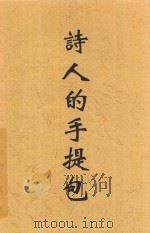 詩人的手提包
mtoou.info